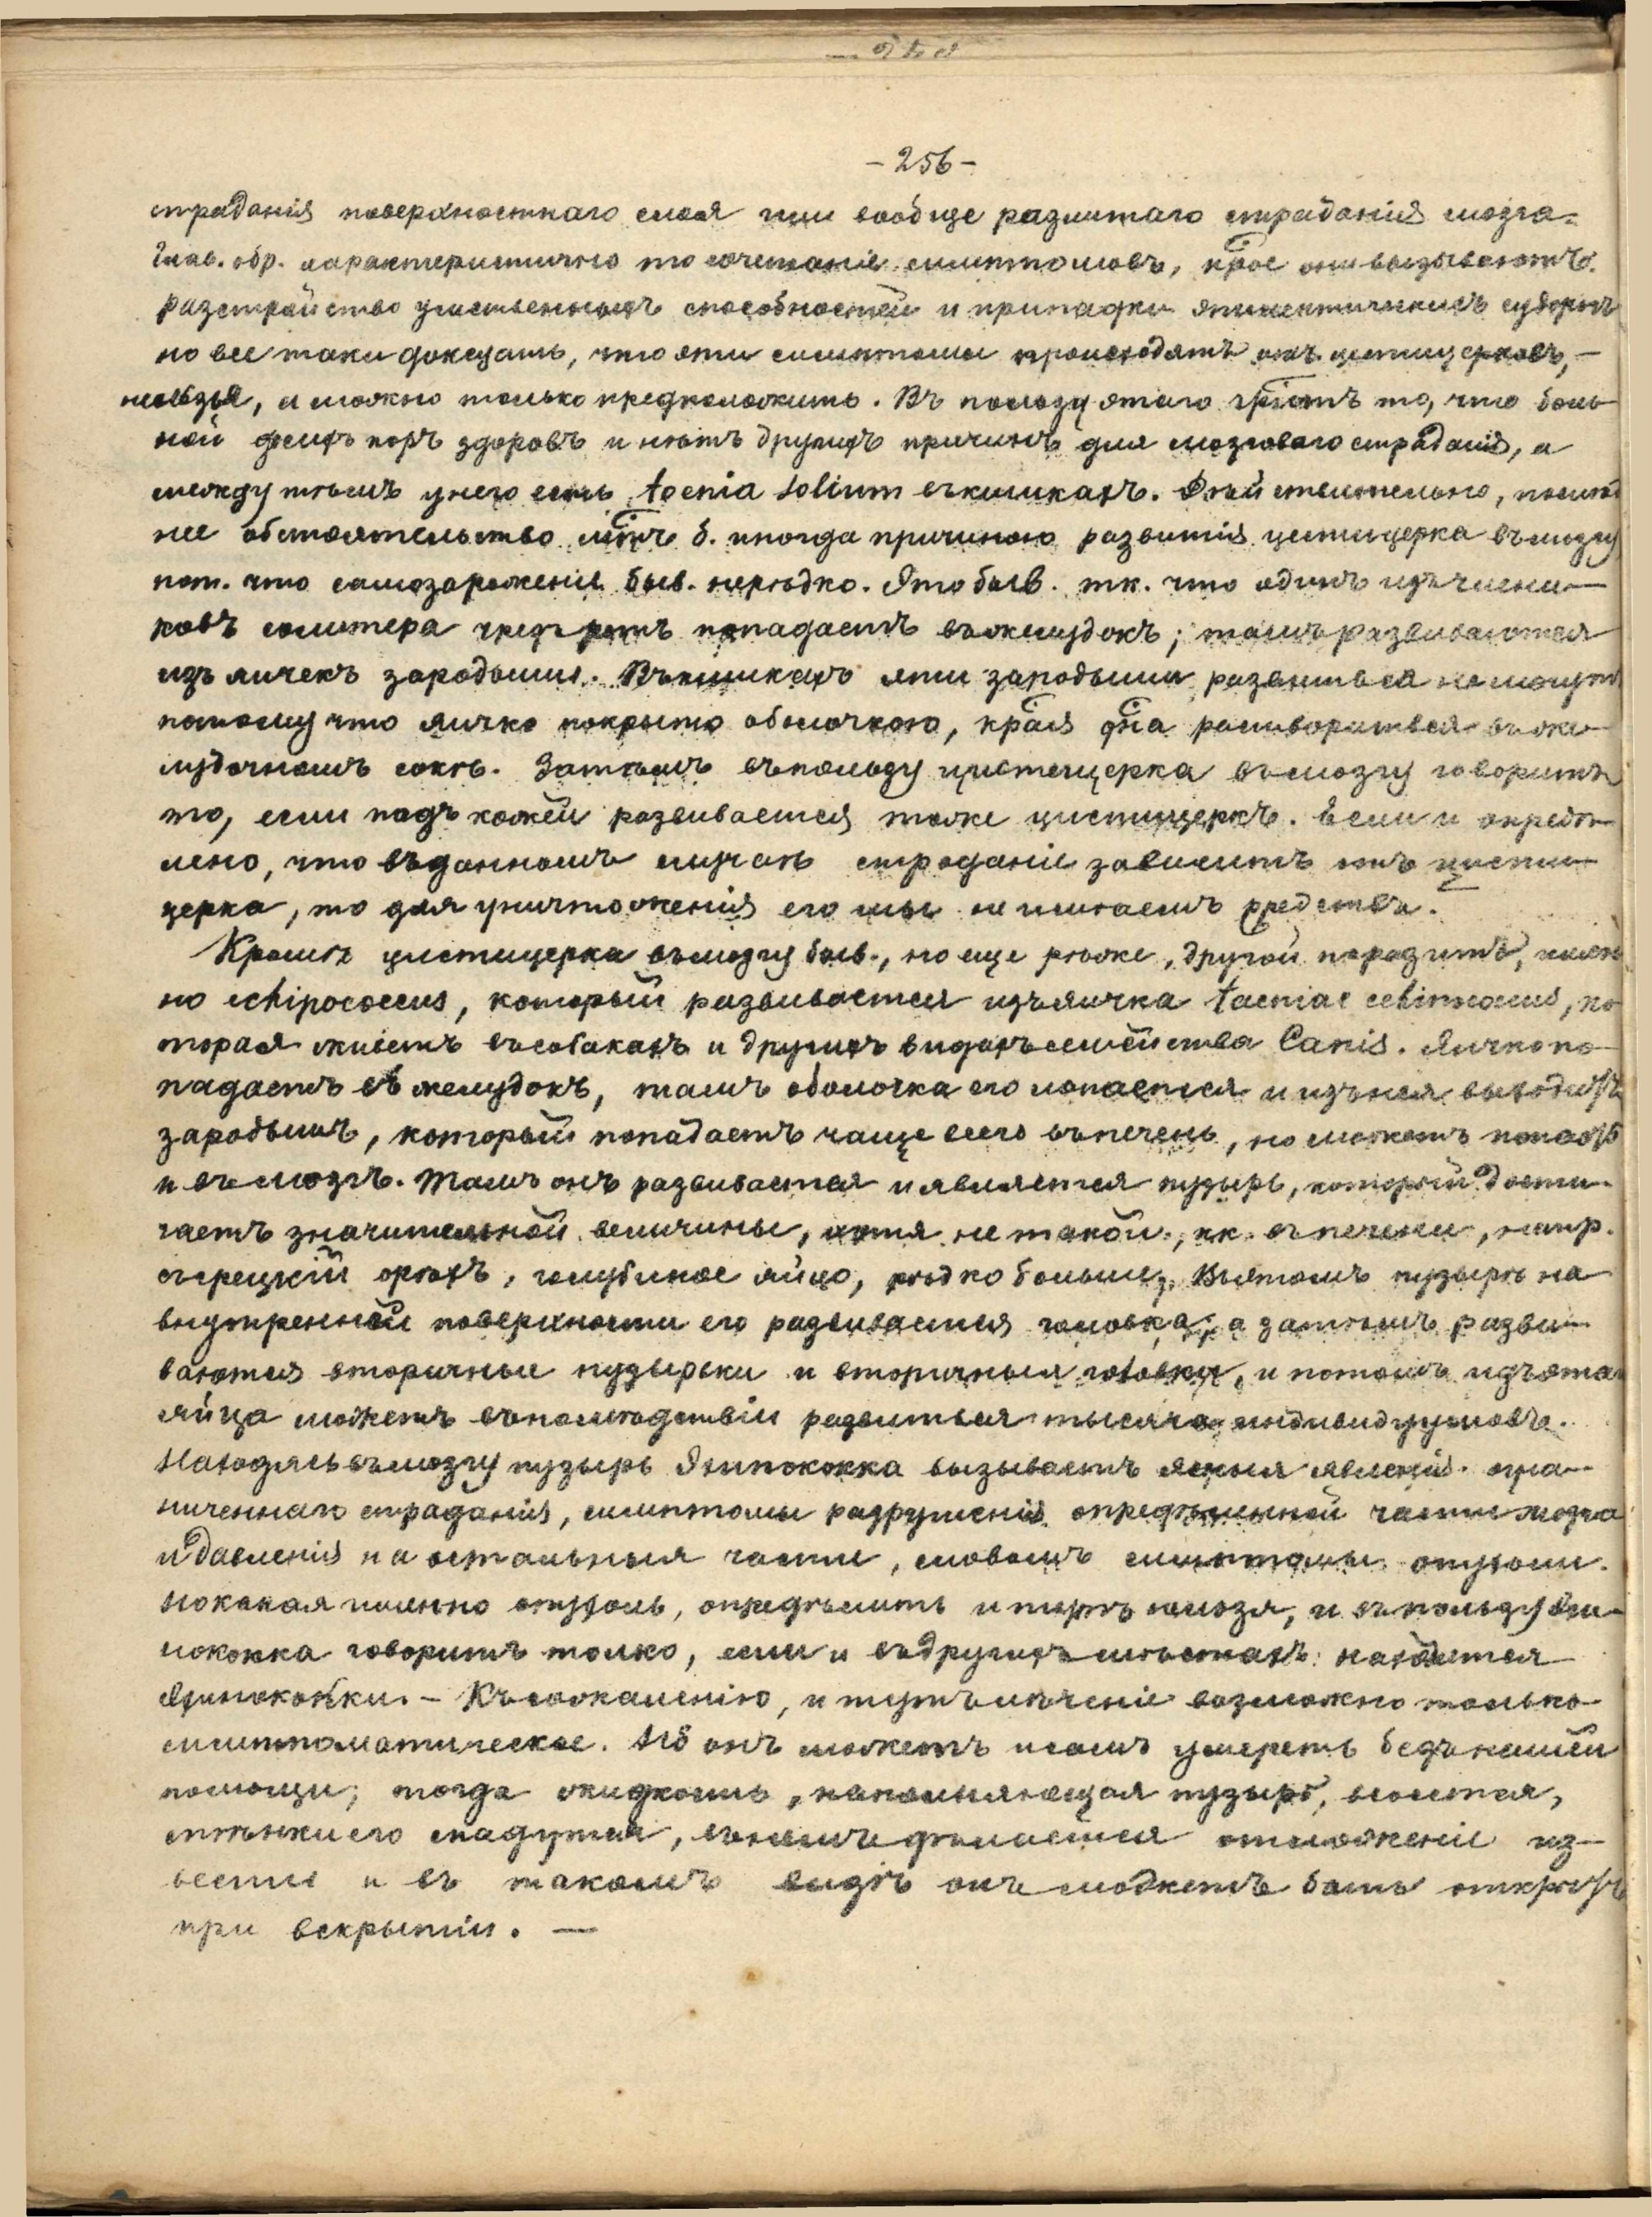 - 256 -
страданія поверхностнаго слоя или вообще разлитаго страданія мозга.
Глав. обр. характеристично то сочетаніе симптомовъ, крое они вызываютъ:
разстройство умственныхъ способностей и припадки эпилептическихъ судорогъ
но все таки доказать, что эти симптомы происходятъ отъ цистицерковъ, —
нельзя, а можно только предположить. Въ пользу этого гритъ то, что боль
ной до сихъ поръ здоровъ и нѣтъ другихъ причинъ для мозговаго страданія, а
между тѣмъ у него есть taenia solium въ кишкахъ. Дѣйствительно, послѣд
нее обстоятельство мтъ б. иногда причиною развитія цистицерка въ мозгу
пот. что самозараженіе быв. нерѣдко. Это быв. тк. что одинъ изъ члени-
ковъ солитера чрезъ ротъ попадаетъ въ желудокъ; тамъ развиваются
изъ яичекъ зародыши. Въ кишкахъ эти зародыши развиться не могутъ
потому что яичко покрыто оболочкою, края дна растворится въ же-
лудочномъ сокѣ. Затѣмъ въ пользу цистицерка въ мозгу говоритъ
то, если подъ кожей развивается тоже цистицеркъ. Если и опредѣ-
лено, что въ данномъ случаѣ страданіе зависитъ отъ цисти-
церка, то для уничтоженія его мы не имѣемъ средствъ.
Кромѣ цистицерка въ мозгу быв., но еще рѣже, другой паразитъ, имен
но echinococcus, который развивается изъ яичка taeniae echinococcus, ко
торая живетъ въ собакахъ и другихъ видахъ семейства Canis. Яичко по-
падаетъ въ желудокъ, тамъ оболочка его лопается и изъ нея выходитъ
зародышъ, который попадаетъ чаще всего въ печень, но можетъ попасть
и въ мозгъ. Тамъ онъ развивается и является пузырь, который дости-
гаетъ значительной величины, хотя не такой, кк. въ печени, напр.
съ грецкій орѣхъ, голубиное яйцо, рѣдко больше. Въ этомъ пузырѣ на
внутренней поверхности его развивается головка, а затѣмъ разви-
ваются вторичные пузырьки и вторичныя головки, и потомъ изъ этого
яйца можетъ въ послѣдствіи развиться тысяча индивидуумовъ.
Находясь въ мозгу пузырь эхинококка вызываетъ ясныя явленія огра-
ниченнаго страданія, симптомы разрушенія опредѣленной части мозга
и давленія на остальныя части, словомъ симптомы опухоли.
Но какая именно опухоль, опредѣлить и тутъ нельзя, и въ пользу эхи-
нококка говоритъ только, если и въ другихъ мѣстахъ находятся
эхинококки. — Къ сожаленію, и тутъ лѣченіе возможно только
симптоматическое. Но онъ можетъ и самъ умереть безъ нашей
помощи; тогда жидкость, наполняющая пузырь, всосется,
стѣнки его спадутся, въ немъ дѣлается отложеніе из-
вести и въ такомъ видѣ онъ можетъ быть открытъ
при вскрытіи. —